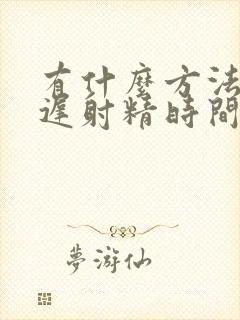 有什麼方法
遲射精時間
夢游仙